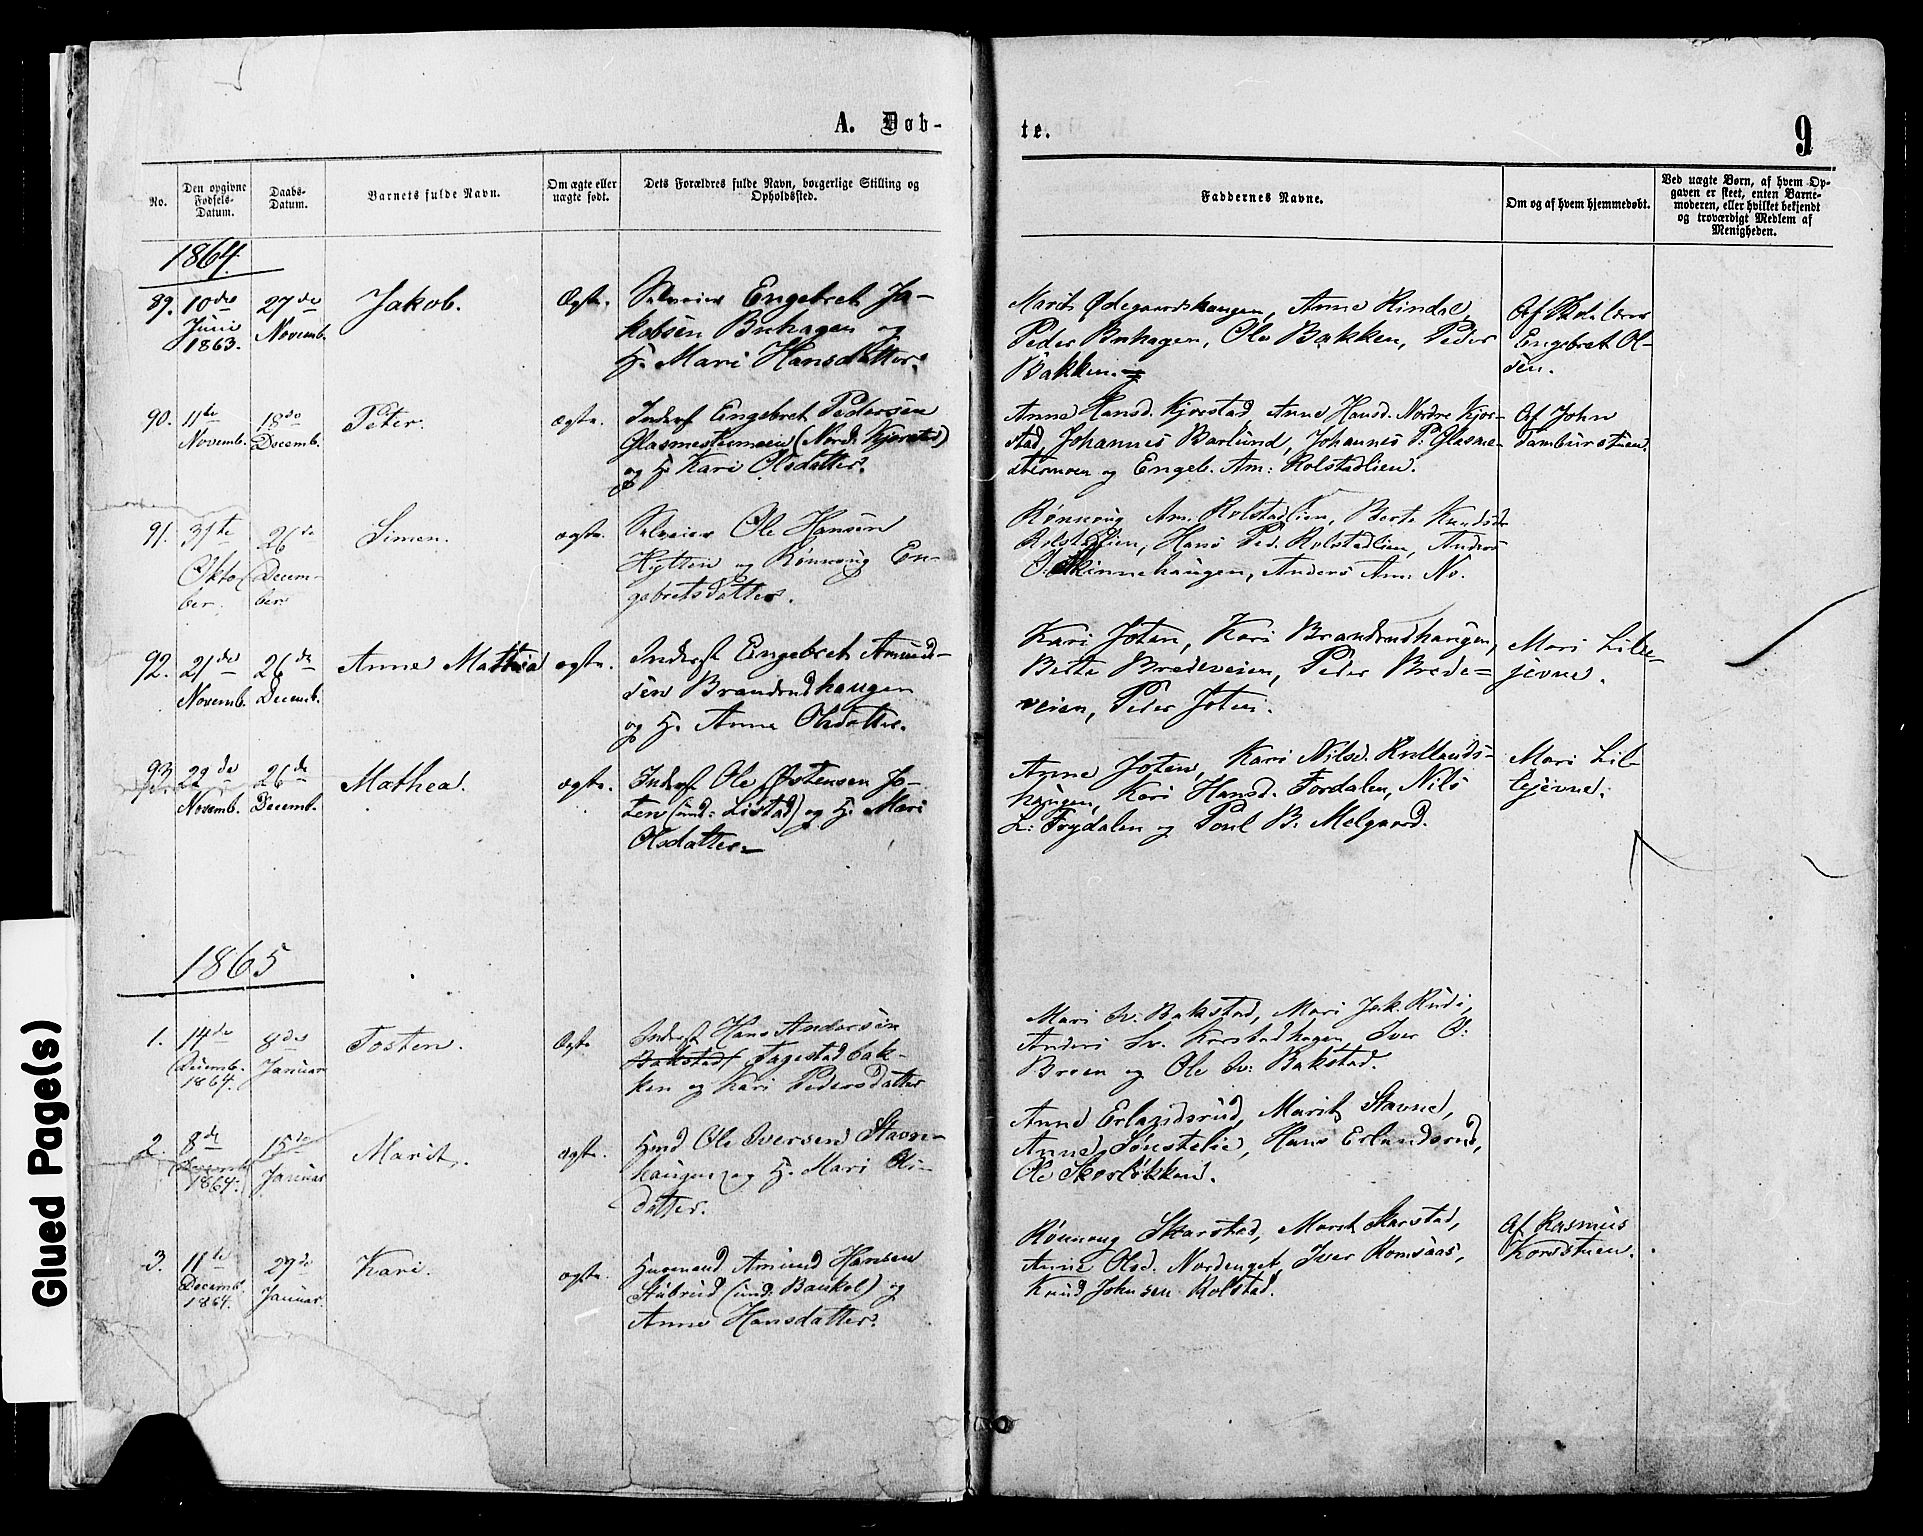 A. Døb-
te.
9
No.
Den opgivne Fødsels-Datum.
Daabs-Datum.
Barnets fulde Navn.
Om ægte eller uægte født.
Dets Forældres fulde Navn, borgerlige Stilling og Opholdssted.
Faddernes Navne.
Om og af hvem hjemmedøbt.
Ved uægte Børn, af hvem Op-
gaven er skeet, enten Barne-
moderen, eller hvilket bekjendt
og troværdigt Medlem af
Menigheden.
1864.
89. 10de Juni 1863. 27de Novemb. Jakob. Ægte.
Selveier Engebret Ja-
kobsen Buhagen og
H. Mari Hansdatter.
Marit Ødegaardshaugen, Anne Rindal,
Peder Buhagen, Ole Bakken, Peder
Bakken.
Af Skolelærer
Engebret Ol-
sen.
90. 11te Novemb. 18de Decemb. Peter. ægte.
Inderst Engebret Pedersen
Glasmestermoen (Nord. Kjorstad)
og H. Kari Olsdatter.
Anne Hansd. Kjorstad, Anne Hansd. Nordre Kjor-
stad, Johannes Barlund, Johannes P. Glasme-
stermoen og Engeb. Am: Rolstadlien.
Af John
Tamburstuen.
91. 31te Oktober. 26de December Simen. ægte.
Selveier Ole Hansen
Hytten og Rønnoug En-
gebretsdatter.
Rønnoug Am. Rolstadlien, Berte Knudsd.
Rolstadlien, Hans Ped. Rolstadlien, Anders
O. Skinnehaugen, Anders Am: No.
92. 21de Novemb. 26de Decemb. Anne Mathea ægte.
Inderst Engebret Amund-
sen Brandrudhaugen
og H. Anne Olsdatter.
Kari Joten, Kari Brandrudhaugen,
Berte Bredeveien, Peder Brede-
veien, Peder Joten.
Mari Lille-
jevne.
93. 22de Novemb. 26de Decemb. Mathea. ægte.
Inderst Ole Østensen Jo-
ten (und: Listad) og H. Mari
Olsdatter.
Anne Joten, Kari Nilsd. Rullands-
haugen, Kari Hansd. Fordalen, Nils
L: Frydalen og Poul B. Melgaard.
Mari Lil-
lejevne.
1865
1. 14de Decemb. 1864. 8de Januar Tosten. Ægte
Inderst Hans Andersen
Bakstad, Fagestadbak-
ken og Kari Pedersdatter
Mari Sv. Bakstad, Mari Jak. Rudi,
Anders Sv. Korstadhagen, Iver O:
Broen og Ole Sv: Bakstad.
2. 8de Decemb. 1864. 15de Januar Marit. ægte.
Hmd Ole Iversen Stavn-
haugen og H. Mari Ols-
datter.
Anne Erlandsrud, Marit Stavne,
Anne Sønstelie, Hans Erlandsrud,
Ole Skorløkken.
3. 11te Decemb. 1864. 29de Januar. Kari. ægte.
Husmand Amund Hansen
Stubrud (und. Baukol) og
Anne Hansdatter.
Rønnoug Skarstad, Marit Skarstad,
Anne Olsd. Nordenget, Iver Romsaas,
Knud Johnsen Rolstad.
Af Rasmus
Kordstuen.
Glued Page(s)